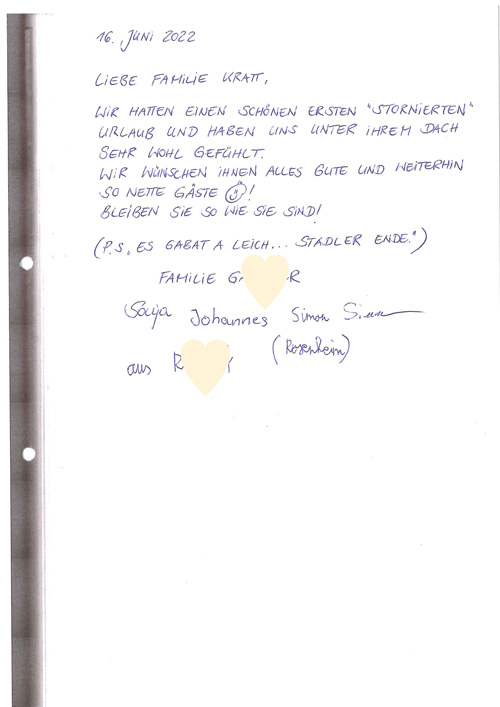 16. JUNI 2022
LIEBE FAMILIE KRATT,
WIR HATTEN EINEN SCHÖNEN ERSTEN "STORNIERTEN"
URLAUB UND HABEN UNS UNTER IHREM DACH
SEHR WOHL GEFÜHLT.
WIR WÜNSCHEN IHNEN ALLES GUTE UND WEITERHIN
SO NETTE GÄSTE !
BLEIBEN SIE SO WIE SIE SIND!
(P.S. „ES GABAT A LEICH... STADLER ENDE.")
FAMILIE
Johannes Simon
(Rosenheim)
aus